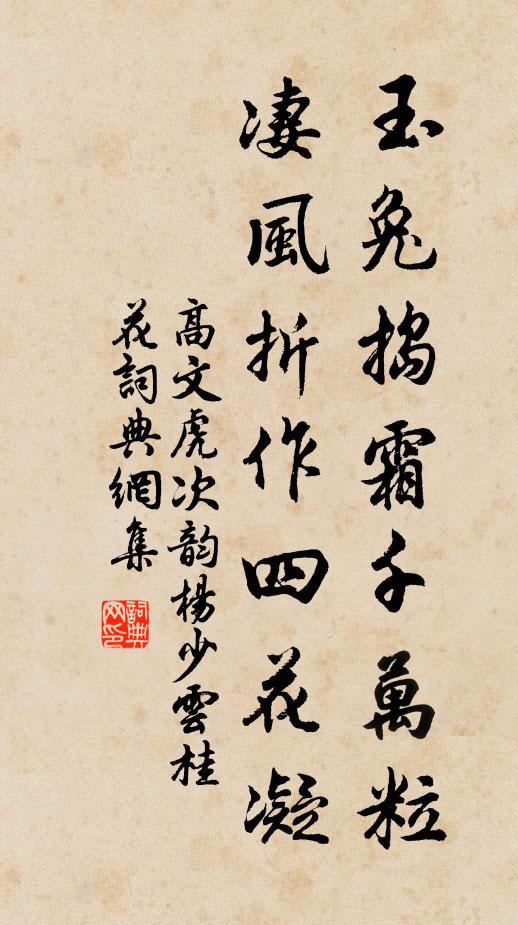 玉兔搗霜千萬粒
凄風折作四花凝
高文虎次韵楊少雲桂
花詞典網集
詞典網印